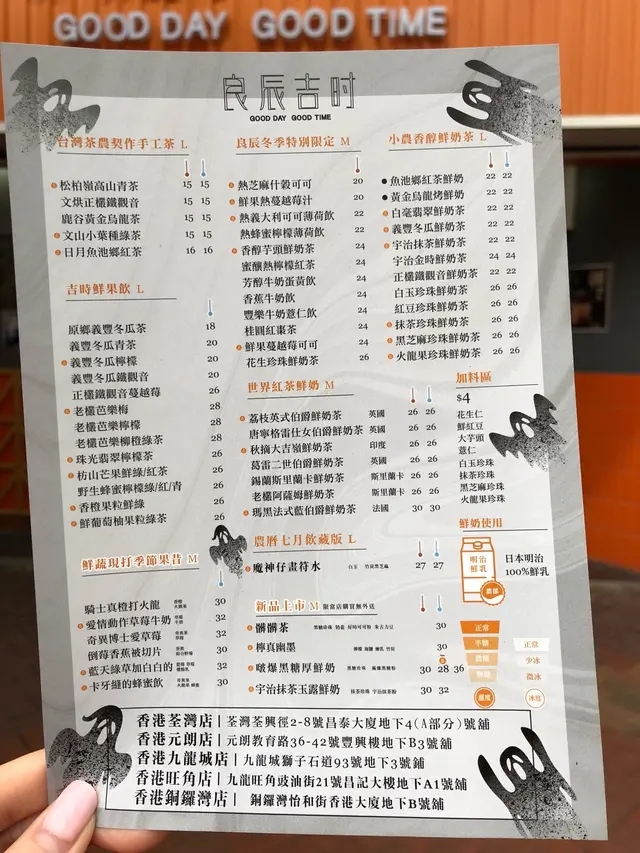 GOOD DAY GOOD TIME
良辰吉时
GOOD DAY GOOD TIME
台灣茶農契作手工茶 L
松柏嶺高山青茶 15 15
文烘正欉鐵觀音 15 15
鹿谷黃金烏龍茶 15 15
文山小葉種綠茶 15 15
日月魚池鄉紅茶 16 16
吉時鮮果飲 L
原鄉義豐冬瓜茶 18
義豐冬瓜青茶 20
義豐冬瓜檸檬 20
義豐冬瓜鐵觀音 20
正欉鐵觀音蔓越莓 26
老欉芭樂梅 28
老欉芭樂檸檬 28
老欉芭樂柳橙綠茶 28
珠光翡翠檸檬茶 26
枋山芒果鮮綠/紅茶 26
野生蜂蜜檸檬綠/紅/青 26
香橙果粒鮮綠 26
鮮葡萄柚果粒綠茶 26
鮮蔬現打季節果昔 M
騎士真橙打火龍 30
愛情動作草莓牛奶 32
奇異博士愛草莓 32
倒莓香蕉被切片 30
藍天綠草加白白的 32
卡牙縫的蜂蜜飲 30
良辰冬季特別限定 M
熱芝麻什穀可可 20
鮮果熱蔓越莓汁 20
熱義大利可可薄荷飲 22
熱蜂蜜檸檬薄荷飲 22
香醇芋頭鮮奶茶 24
蜜釀熱檸檬紅茶 24
芳醇牛奶蛋黃飲 24
香蕉牛奶飲 24
豐樂牛奶薏仁飲 24
桂圓紅棗茶 24
鮮果蔓越莓可可 24
花生珍珠鮮奶茶 26
世界紅茶鮮奶 M
荔枝英式伯爵鮮奶茶 英國 26 26
唐寧格雷仕女伯爵鮮奶茶 英國 26 26
秋摘大吉嶺鮮奶茶 印度 26 26
葛雷二世伯爵鮮奶茶 英國 26 26
錫蘭斯里蘭卡鮮奶茶 斯里蘭卡 26 26
老欉阿薩姆鮮奶茶 斯里蘭卡 26 26
瑪黑法式藍伯爵鮮奶茶 法國 30 30
農曆七月飲藏版 L
魔神仔畫符水 白玉 竹炭黑芝麻 27 27
新品上市 M 限當店購買無外送
髒髒茶 30
檸真幽墨 30
啵爆黑糖厚鮮奶 30 28 36
宇治抹茶玉露鮮奶 30 32
小農香醇鮮奶茶 L
魚池鄉紅茶鮮奶 22 22
黃金烏龍烤鮮奶 22 22
白毫翡翠鮮奶茶 22 22
義豐冬瓜鮮奶茶 22 22
宇治抹茶鮮奶茶 22 22
宇治金時鮮奶茶 24 24
正欉鐵觀音鮮奶茶 22 22
白玉珍珠鮮奶茶 26 26
紅豆珍珠鮮奶茶 26 26
抹茶珍珠鮮奶茶 26 26
黑芝麻珍珠鮮奶茶 26 26
火龍果珍珠鮮奶茶 26 26
加料區
$4
花生仁
鮮紅豆
大芋頭
薏仁
白玉珍珠
抹茶珍珠
黑芝麻珍珠
火龍果珍珠
鮮奶使用
明治
鮮乳
濃郁
日本明治
100%鮮乳
正常
半糖
微糖
無糖
甜度
正常
少冰
微冰
冰塊
香港荃灣店 | 荃灣荃興徑2-8號昌泰大廈地下4(A部分)號舖
香港元朗店 | 元朗教育路36-42號豐興樓地下B3號舖
香港九龍城店 | 九龍城獅子石道93號地下3號舖
香港旺角店 | 九龍旺角豉油街21號昌記大樓地下A1號舖
香港銅鑼灣店 | 銅鑼灣怡和街香港大廈地下B號舖